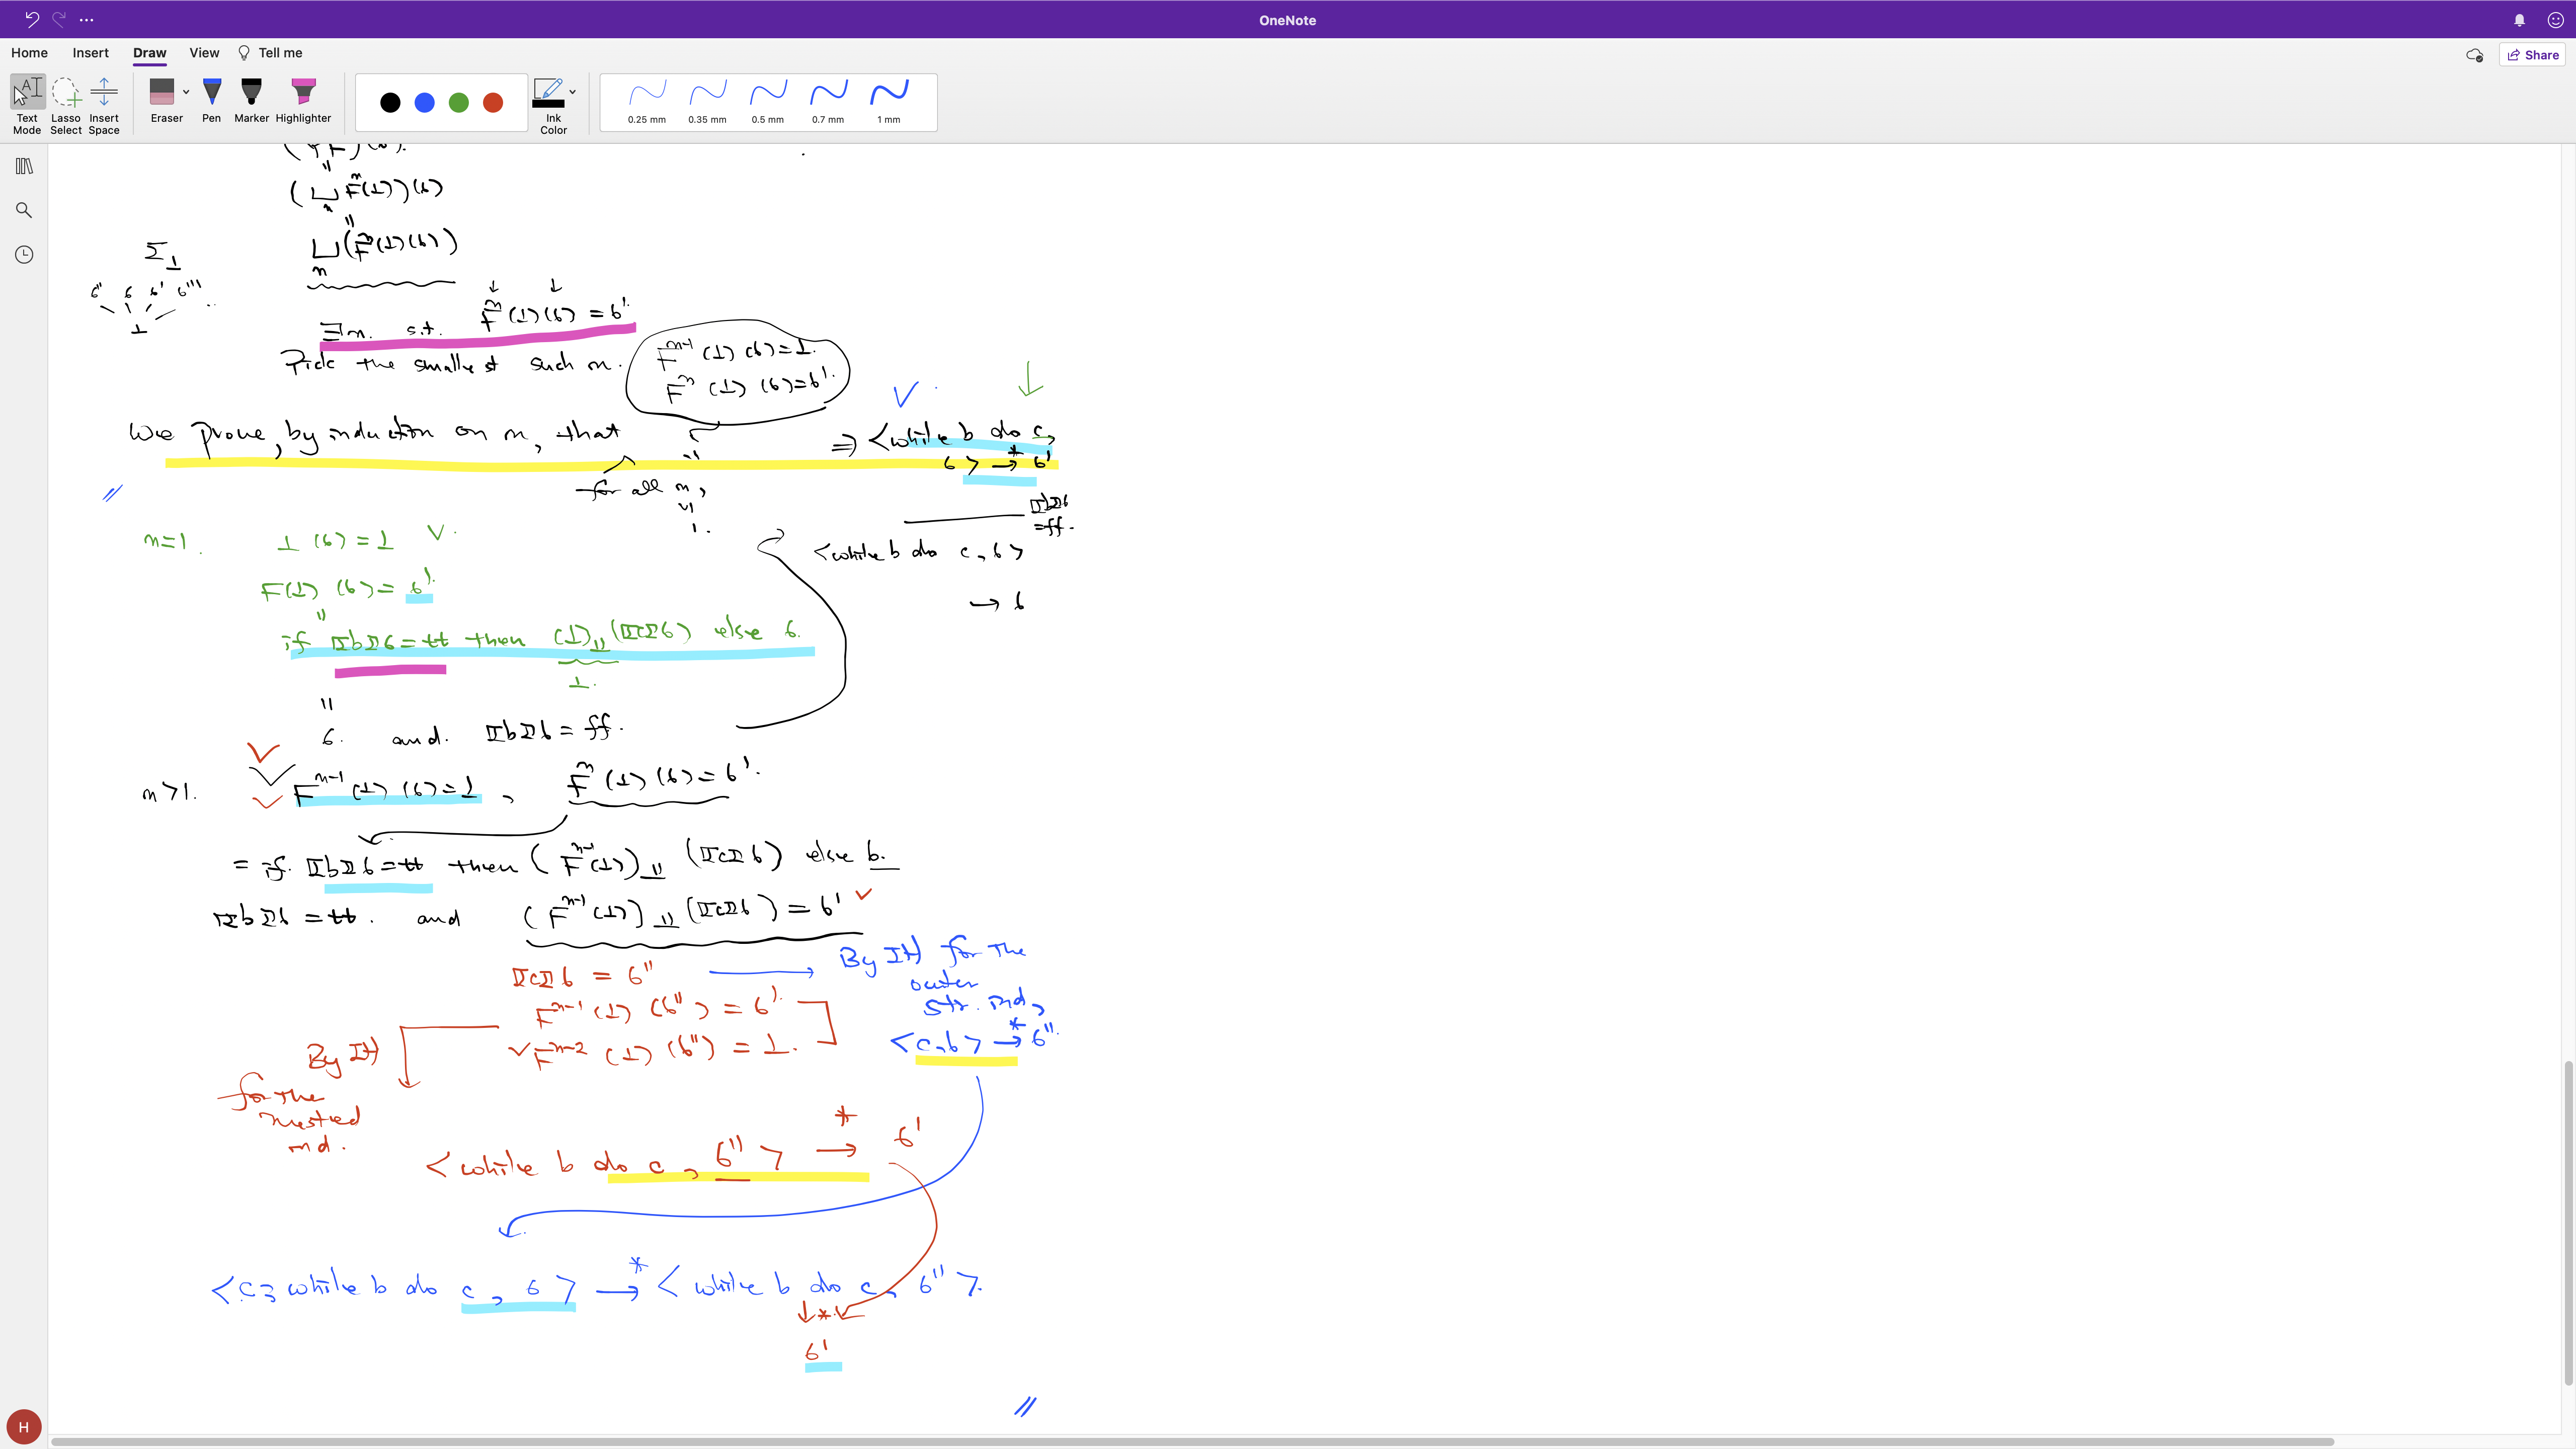 OneNote
Home Insert Draw View Tell me
Share
Text Mode
Lasso Select
Insert Space
Eraser
Pen
Marker
Highlighter
Ink Color
0.25 mm
0.35 mm
0.5 mm
0.7 mm
1 mm
(⊔ₙ Fⁿ(⊥))(σ)
"
⊔ₙ (Fⁿ(⊥)(σ))
Σ⊥
σ'' σ σ' σ'''
⊥
∃n. s.t. Fⁿ(⊥)(σ) = σ'.
Pick the smallest such n.
Fⁿ⁻¹(⊥)(σ) = ⊥.
Fⁿ(⊥)(σ) = σ'.
We prove, by induction on n, that ⇒ <while b do c,
σ> →* σ'
for all n,
≥
1.
⟦b⟧σ
= ff.
<while b do c, σ>
→ σ
n=1. ⊥(σ) = ⊥ ✓.
F(⊥)(σ) = σ'.
"
if ⟦b⟧σ = tt then (⊥)⊥⊥(⟦c⟧σ) else σ.
⊥.
"
σ. and. ⟦b⟧σ = ff.
n>1. Fⁿ⁻¹(⊥)(σ) = ⊥, Fⁿ(⊥)(σ) = σ'.
= if. ⟦b⟧σ = tt then (Fⁿ⁻¹(⊥))⊥⊥(⟦c⟧σ) else σ.
⟦b⟧σ = tt. and (Fⁿ⁻¹(⊥))⊥⊥(⟦c⟧σ) = σ' ✓
⟦c⟧σ = σ'' → By IH for the
outer
str. ind,
<c, σ> →* σ''.
Fⁿ⁻¹(⊥)(σ'') = σ'.
✓ Fⁿ⁻²(⊥)(σ'') = ⊥.
By IH
for the
nested
ind.
<while b do c, σ''> →* σ'
<c; while b do c, σ> →* <while b do c, σ''>.
↓*
σ'
H